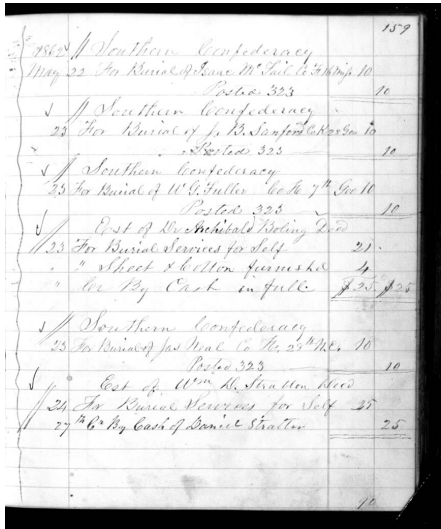 159
1862 Southern Confederacy
May 22 For Burial of Isaac Mc Co H 16 Miss 10
Posted 323 10
Southern Confederacy
23 For Burial of J. B. Sanford Co K 28 Geo 10
Posted 323 10
Southern Confederacy
23 For Burial of W G. Fuller Co H 7th Geo 10
Posted 323 10
Est of Dr Archibald Boling Decd
23 For Burial Services for Self 21
" " Sheet & Cotton furnished 4
" Cr By Cash in full $25 $25
Southern Confederacy
23 For Burial of Jas Neal Co H, 23th N.C. 10
Posted 323 10
Est of Wm D. Stratton Decd
24 For Burial Services for Self 25
27th Cr By Cash of Daniel Stratton 25
90